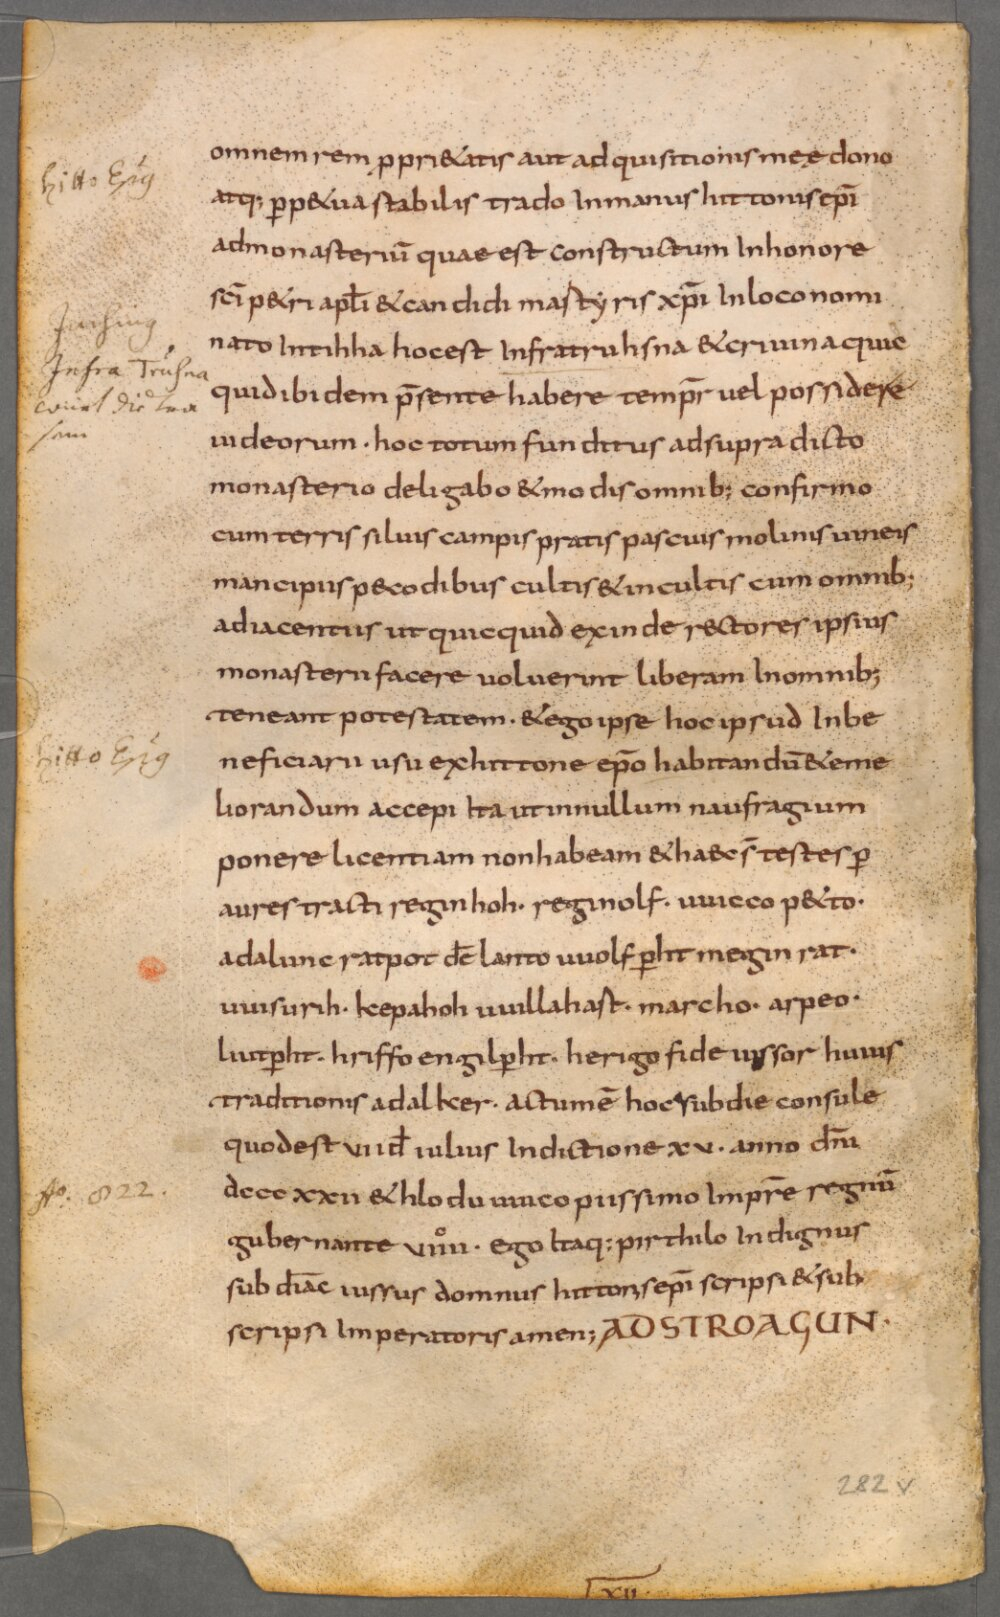 hitto Ep̄s
omnem rem ꝓpri&atis aut adquisitionis meę dono
atq; ꝑp&ua stabilis trado Inmanus hittonis ep̄i
admonasteriū quae est constructum Inhonore
sc̄i p&ri apłi & candidi mastyris xp̄i Inloco nomi
nato Intihha hoc est Infra truhsna & criuina quic
quid ibidem p̄sente habere temp̄r uel possidere
uideorum · hoc totum funditus ad supra dicto
monasterio deligabo & modis omnib; confirmo
cum terris siluis campis pratis pascuis molinis uineis
mancipiis p&codibus cultis & incultis cum omnib;
adiacentiis ut quicquid exinde r&ctores ipsius
monasterii facere uoluerint liberam Inomnib;
teneant potestatem · & ego ipse hoc ipsud Inbe
neficiarii usu ex hittone ep̄o habitandū & eme
liorandum accepi Ita ut innullum naufragium
ponere licentiam non habeam & haec s̄ testes ꝑ
aures tracti reginhoh · reginolf · uuicco p&to ·
adalunc ratpot dēlanto uuolfꝑht meginrat ·
uuisurih · kepahoh uuillahast · marcho · arpeo ·
liutꝑht · hriffo engilꝑht · herigo fideiussor huius
traditionis adalker · actum ē hoc sub die consule
quod est vii id iulius Indictione xv · anno dn̄i
dcccxxii & hloduuuico piissimo Impr̄e regnū
gubernante viiii · ego Itaq; pirthilo Indignus
sub diāc iussus domnus hittonis ep̄i scripsi & sub
scripsi Imperatoris amen; AD STROAGUN ·
Infra Truhsna
hitto Ep̄s
Ao. 822.
282 v
xvi